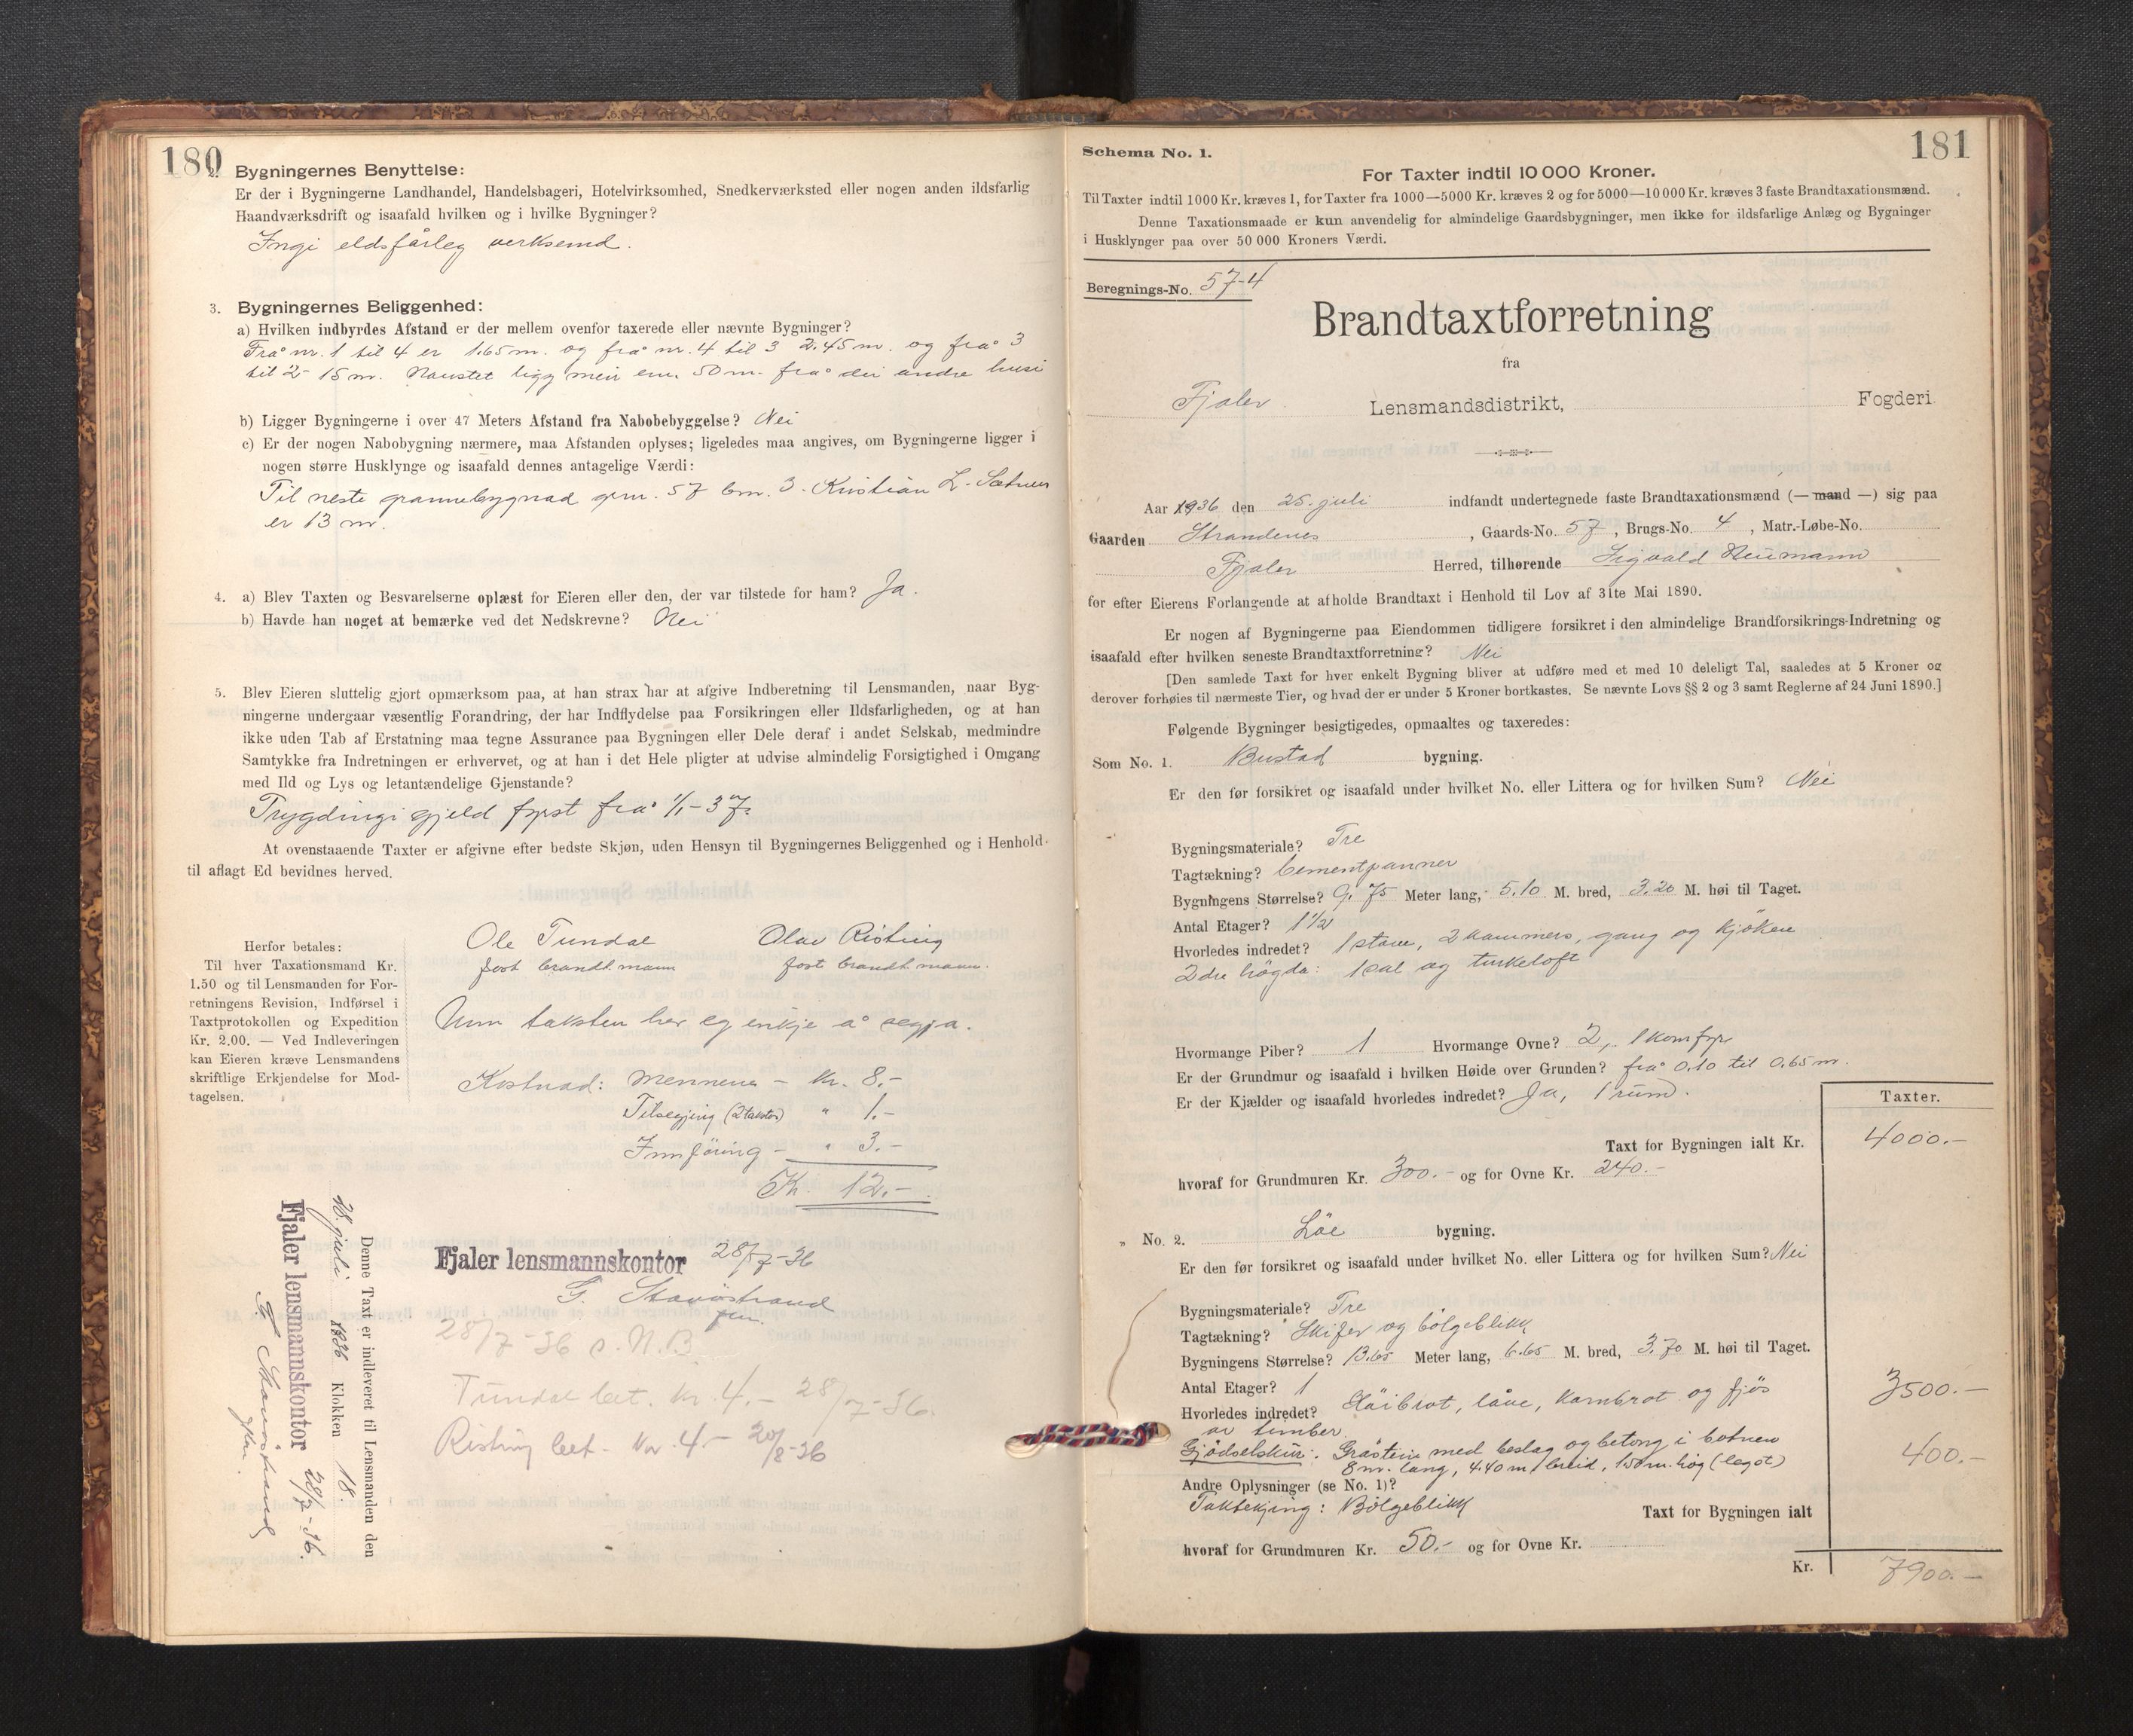 180
2. Bygningernes Benyttelse:
Er der i Bygningerne Landhandel, Handelsbageri, Hotelvirksomhed, Snedkerværksted eller nogen anden ildsfarlig
Haandværksdrift og isaafald hvilken og i hvilke Bygninger?
Ingi eldsfårleg verksemd.
3. Bygningernes Beliggenhed:
a) Hvilken indbyrdes Afstand er der mellem ovenfor taxerede eller nævnte Bygninger?
Frå nr. 1 til 4 er 1.65 m. og frå nr. 4 til 3 2.45 m. og frå 3
til 2 - 15 m. Naustet ligg meir enn 50 m. frå dei andre husi
b) Ligger Bygningerne i over 47 Meters Afstand fra Nabobebyggelse? Nei
c) Er der nogen Nabobygning nærmere, maa Afstanden oplyses; ligeledes maa angives, om Bygningerne ligger i
nogen større Husklynge og isaafald dennes antagelige Værdi:
Til neste grannebygnad grn. 57 brn. 3 - Kristian L.
er 13 m.
4. a) Blev Taxten og Besvarelserne oplæst for Eieren eller den, der var tilstede for ham? Ja.
b) Havde han noget at bemærke ved det Nedskrevne? Nei
5. Blev Eieren sluttelig gjort opmærksom paa, at han strax har at afgive Indberetning til Lensmanden, naar Byg-
ningerne undergaar væsentlig Forandring, der har Indflydelse paa Forsikringen eller Ildsfarligheden, og at han
ikke uden Tab af Erstatning maa tegne Assurance paa Bygningen eller Dele deraf i andet Selskab, medmindre
Samtykke fra Indretningen er erhvervet, og at han i det Hele pligter at udvise almindelig Forsigtighed i Omgang
med Ild og Lys og letantændelige Gjenstande?
Trygdingi gjeld fyrst frå 1/1-37.
At ovenstaaende Taxter er afgivne efter bedste Skjøn, uden Hensyn til Bygningernes Beliggenhed og i Henhold
til aflagt Ed bevidnes herved.
Ole Tundal Olav Risting
fast brandt.mann fast brandt.mann.
Herfor betales:
Til hver Taxationsmand Kr.
1.50 og til Lensmanden for For-
retningens Revision, Indførsel i
Taxtprotokollen og Expedition
Kr. 2.00. — Ved Indleveringen
kan Eieren kræve Lensmandens
skriftlige Erkjendelse for Mod-
tagelsen.
Um taksten her eg inkje å segja.
Kostnad: Mennene - Kr. 8.-
Tilsegjing (2 takstm) " 1.-
Innføring - " 3.-
Kr. 12.-
Fjaler lensmannskontor 28/7-36
28/7-36 s. N.B
Tundal bet. Kr. 4.- 28/7-36.
Risting bet. Kr. 4.- 20/8-36
Denne Taxt er indleveret til Lensmanden den
28. juli 1936 Klokken 18.
Fjaler lensmannskontor 28/7-36.
181
Schema No. 1.
For Taxter indtil 10 000 Kroner.
Til Taxter indtil 1000 Kr. kræves 1, for Taxter fra 1000—5000 Kr. kræves 2 og for 5000—10 000 Kr. kræves 3 faste Brandtaxationsmænd.
Denne Taxationsmaade er kun anvendelig for almindelige Gaardsbygninger, men ikke for ildsfarlige Anlæg og Bygninger
i Husklynger paa over 50 000 Kroners Værdi.
Beregnings-No. 57-4
Brandtaxtforretning
fra
Fjaler Lensmandsdistrikt, Fogderi
Aar 1936 den 25. juli indfandt undertegnede faste Brandtaxationsmænd (— mand —) sig paa
Gaarden Strandenes, Gaards-No. 57, Brugs-No. 4, Matr.-Løbe-No.
Fjaler Herred, tilhørende Sigvald Neumann
for efter Eierens Forlangende at afholde Brandtaxt i Henhold til Lov af 31te Mai 1890.
Er nogen af Bygningerne paa Eiendommen tidligere forsikret i den almindelige Brandforsikrings-Indretning og
isaafald efter hvilken seneste Brandtaxtforretning? Nei
[Den samlede Taxt for hver enkelt Bygning bliver at udføre med et med 10 deleligt Tal, saaledes at 5 Kroner og
derover forhøies til nærmeste Tier, og hvad der er under 5 Kroner bortkastes. Se nævnte Lovs §§ 2 og 3 samt Reglerne af 24 Juni 1890.]
Følgende Bygninger besigtigedes, opmaaltes og taxeredes:
Som No. 1. Bustad bygning.
Er den før forsikret og isaafald under hvilket No. eller Littera og for hvilken Sum? Nei
Bygningsmateriale? Tre
Tagtækning? Cementpanner
Bygningens Størrelse? 9.75 Meter lang, 5.10 M. bred, 3.20 M. høi til Taget.
Antal Etager? 1 1/2
Hvorledes indredet? 1 stove, 2 kammers, gang og kjøken
2dre høgda: 1 sal og turkeloft
Hvormange Piber? 1 Hvormange Ovne? 2, 1 komfyr
Er der Grundmur og isaafald i hvilken Høide over Grunden? frå 0.10 til 0.65 m.
Er der Kjælder og isaafald hvorledes indredet? Ja, 1 rum.
Taxter.
Taxt for Bygningen ialt Kr. 4000.-
hvoraf for Grundmuren Kr. 300.- og for Ovne Kr. 240.-
„ No. 2. Löe bygning.
Er den før forsikret og isaafald under hvilket No. eller Littera og for hvilken Sum? Nei
Bygningsmateriale? Tre
Tagtækning? Skifer og bölgeblikk
Bygningens Størrelse? 13.65 Meter lang, 6.65 M. bred, 3.70 M. høi til Taget.
Antal Etager? 1 3500.-
Hvorledes indredet? Höibrot, låve, kornbrot og fjös
av timber.
Gjødselskur: Gråstein med beslag og betong i botnen
8 m. lang, 4.40 m. breid, 1.50 m. høg 400.-
Andre Oplysninger (se No. 1)?
Taktekjing: Bölgeblikk
Taxt for Bygningen ialt
hvoraf for Grundmuren Kr. 50.- og for Ovne Kr.
Kr. 7900.-